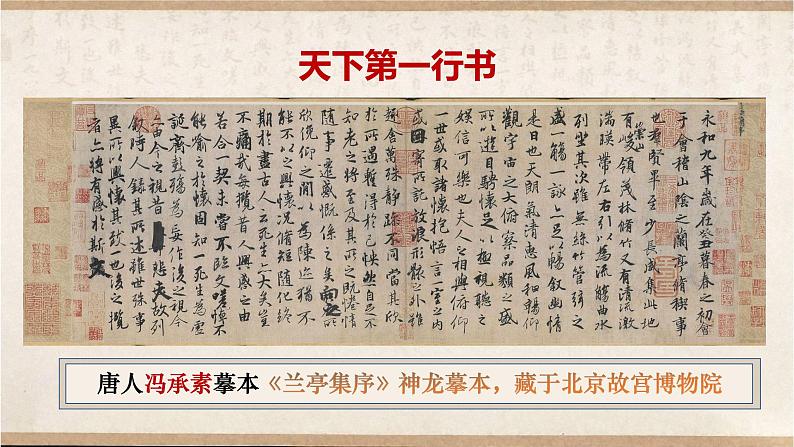 天下第一行书
永和九年歲在癸丑暮春之初會
于會稽山陰之蘭亭脩稧事
也羣賢畢至少長咸集此地
有崇山峻領茂林脩竹又有清流激
湍暎帶左右引以為流觴曲水
列坐其次雖無絲竹管弦之
盛一觴一詠亦足以暢敘幽情
是日也天朗氣清惠風和暢仰
觀宇宙之大俯察品類之盛
所以遊目騁懷足以極視聽之
娛信可樂也夫人之相與俯仰
一世或取諸懷抱悟言一室之內
或因寄所託放浪形骸之外雖
趣舍萬殊靜躁不同當其欣
於所遇蹔得於己怏然自足不
知老之將至及其所之既惓情
隨事遷感慨係之矣向之所
欣俛仰之閒以為陳迹猶不
能不以之興懷況脩短隨化終
期於盡古人云死生亦大矣豈
不痛哉每攬昔人興感之由
若合一契未嘗不臨文嗟悼不
能喻之於懷固知一死生為虛
誕齊彭殤為妄作後之視今
亦由今之視昔悲夫故列
敘時人錄其所述雖世殊事
異所以興懷其致一也後之攬
者亦將有感於斯文
唐人冯承素摹本《兰亭集序》神龙摹本，藏于北京故宫博物院